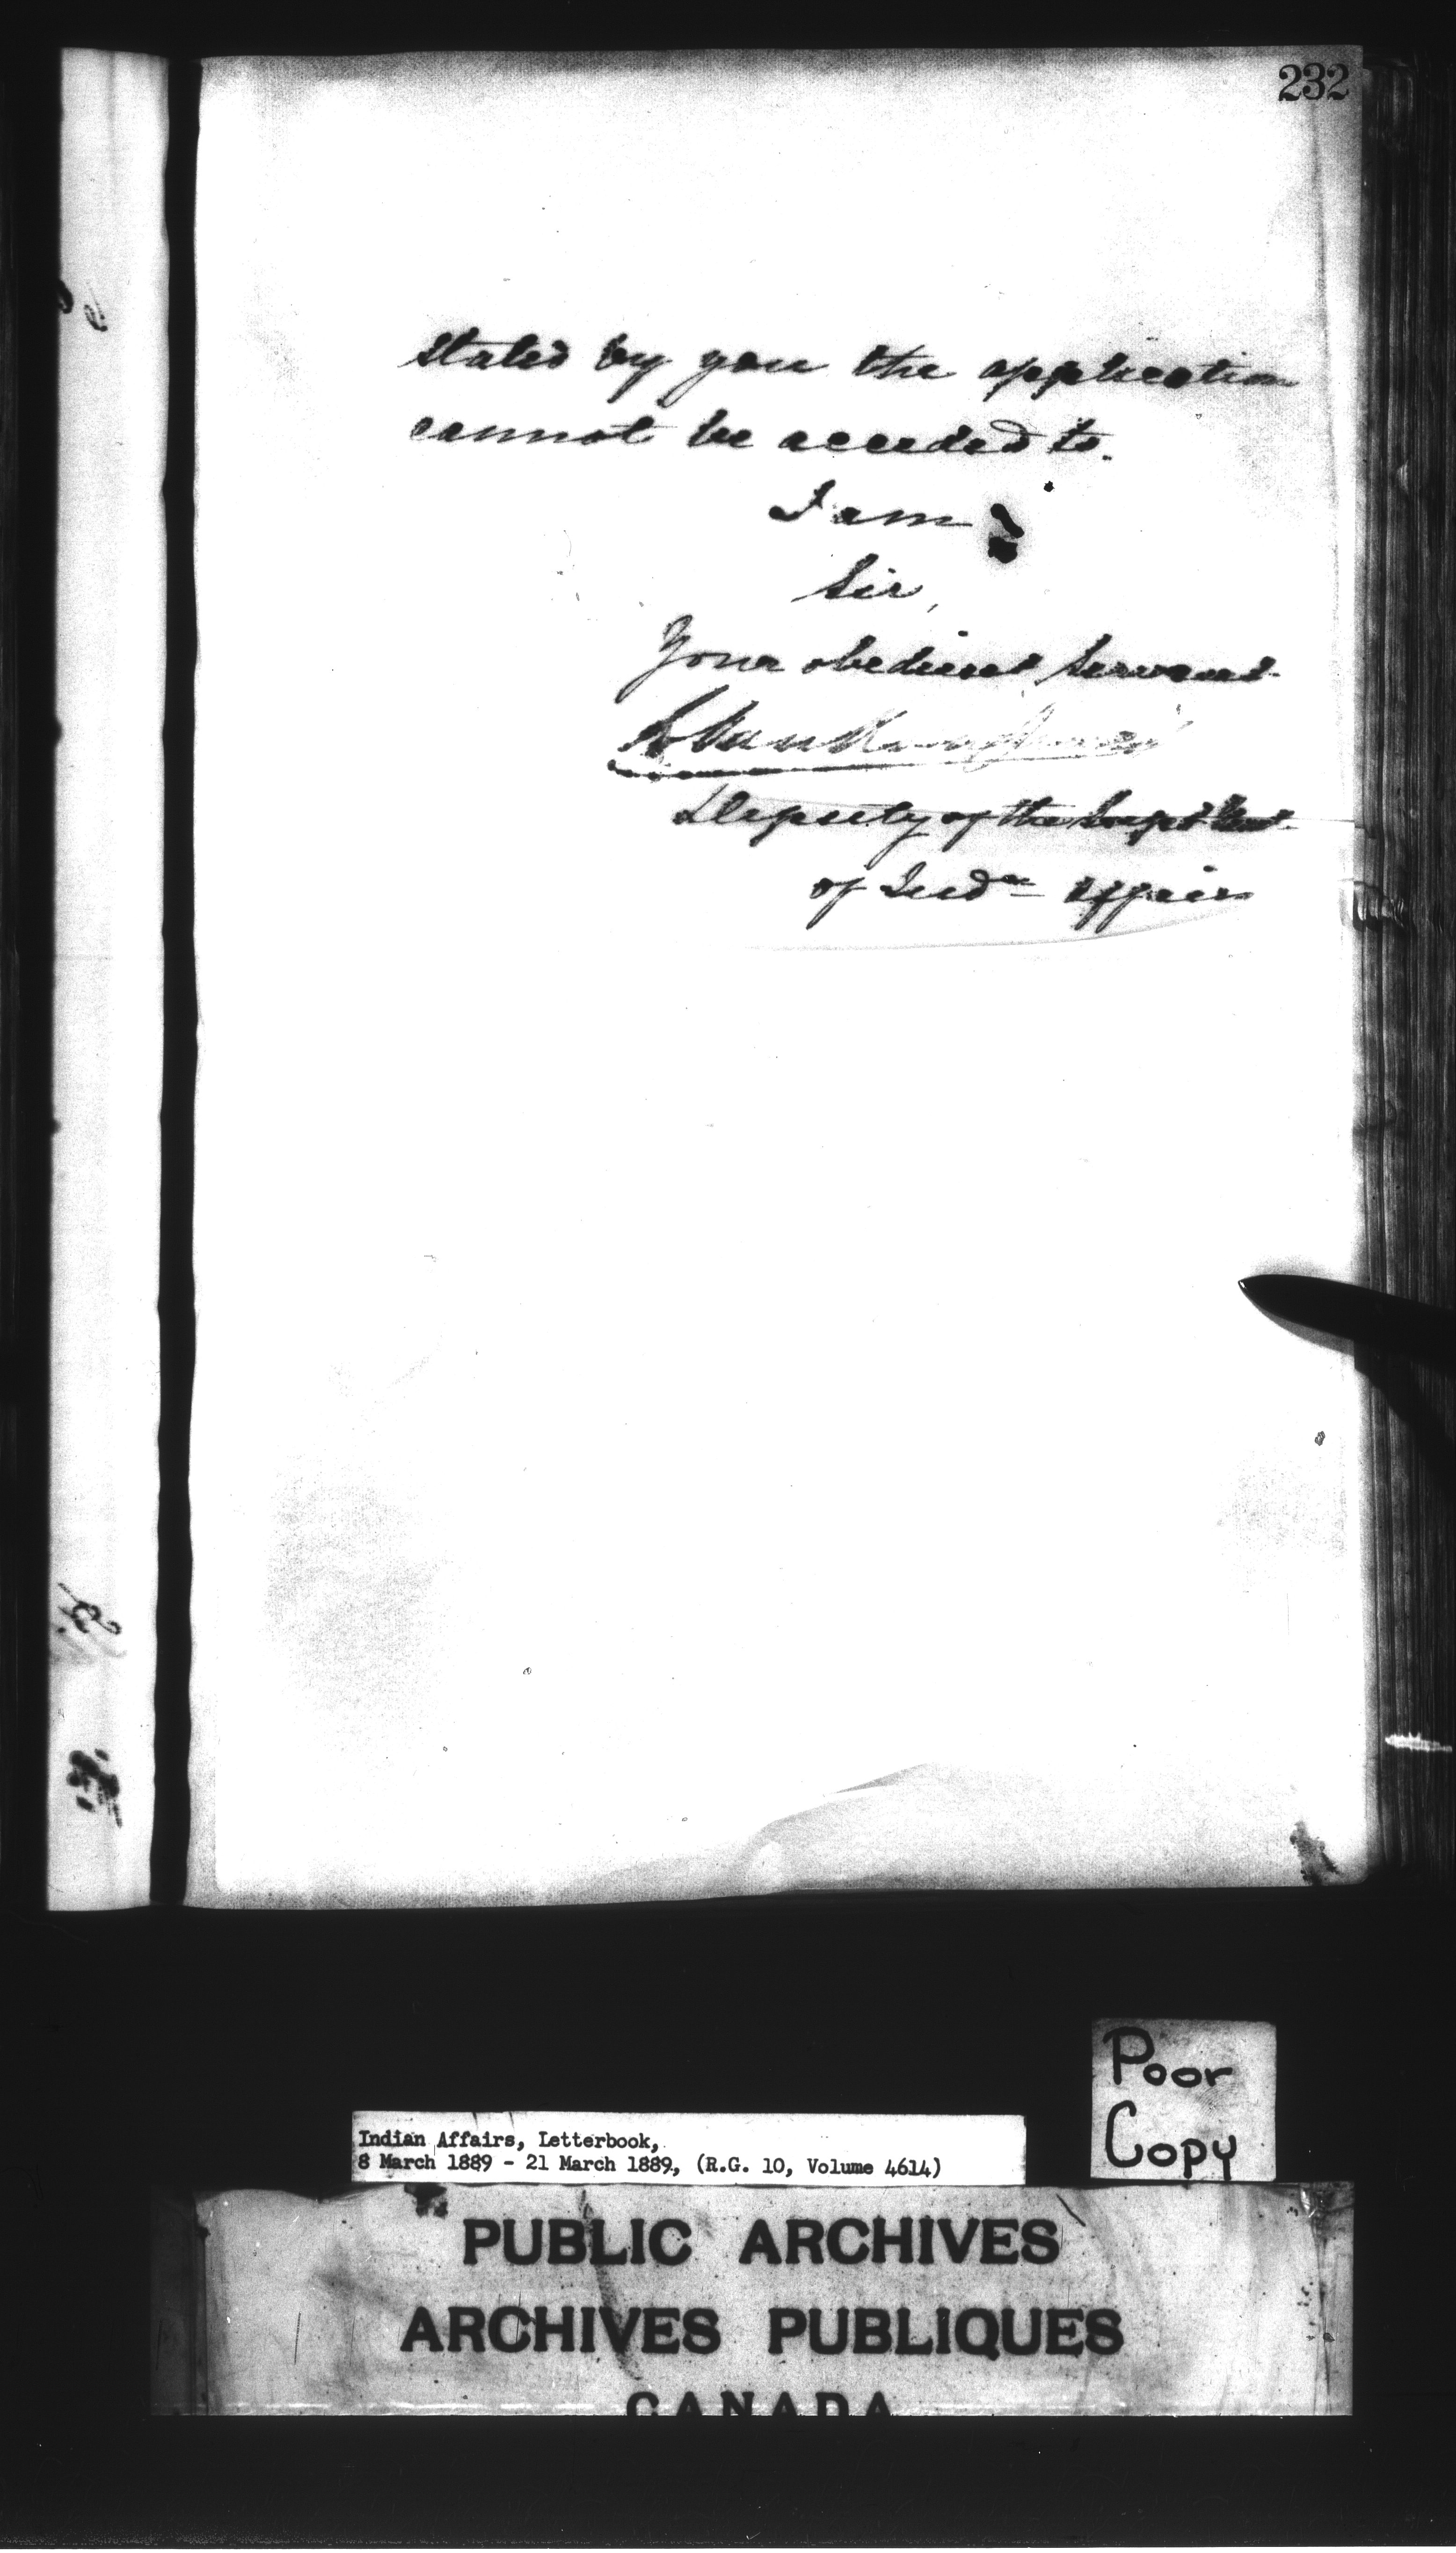 232
stated by you the application
cannot be acceded to.
I am
Sir,
Your obedient servant
L. VanKoughnet
Deputy of the Supt Genl.
of Indn Affairs
Poor
Copy
Indian Affairs, Letterbook,
8 March 1889 - 21 March 1889, (R.G. 10, Volume 4614)
PUBLIC ARCHIVES
ARCHIVES PUBLIQUES
CANADA